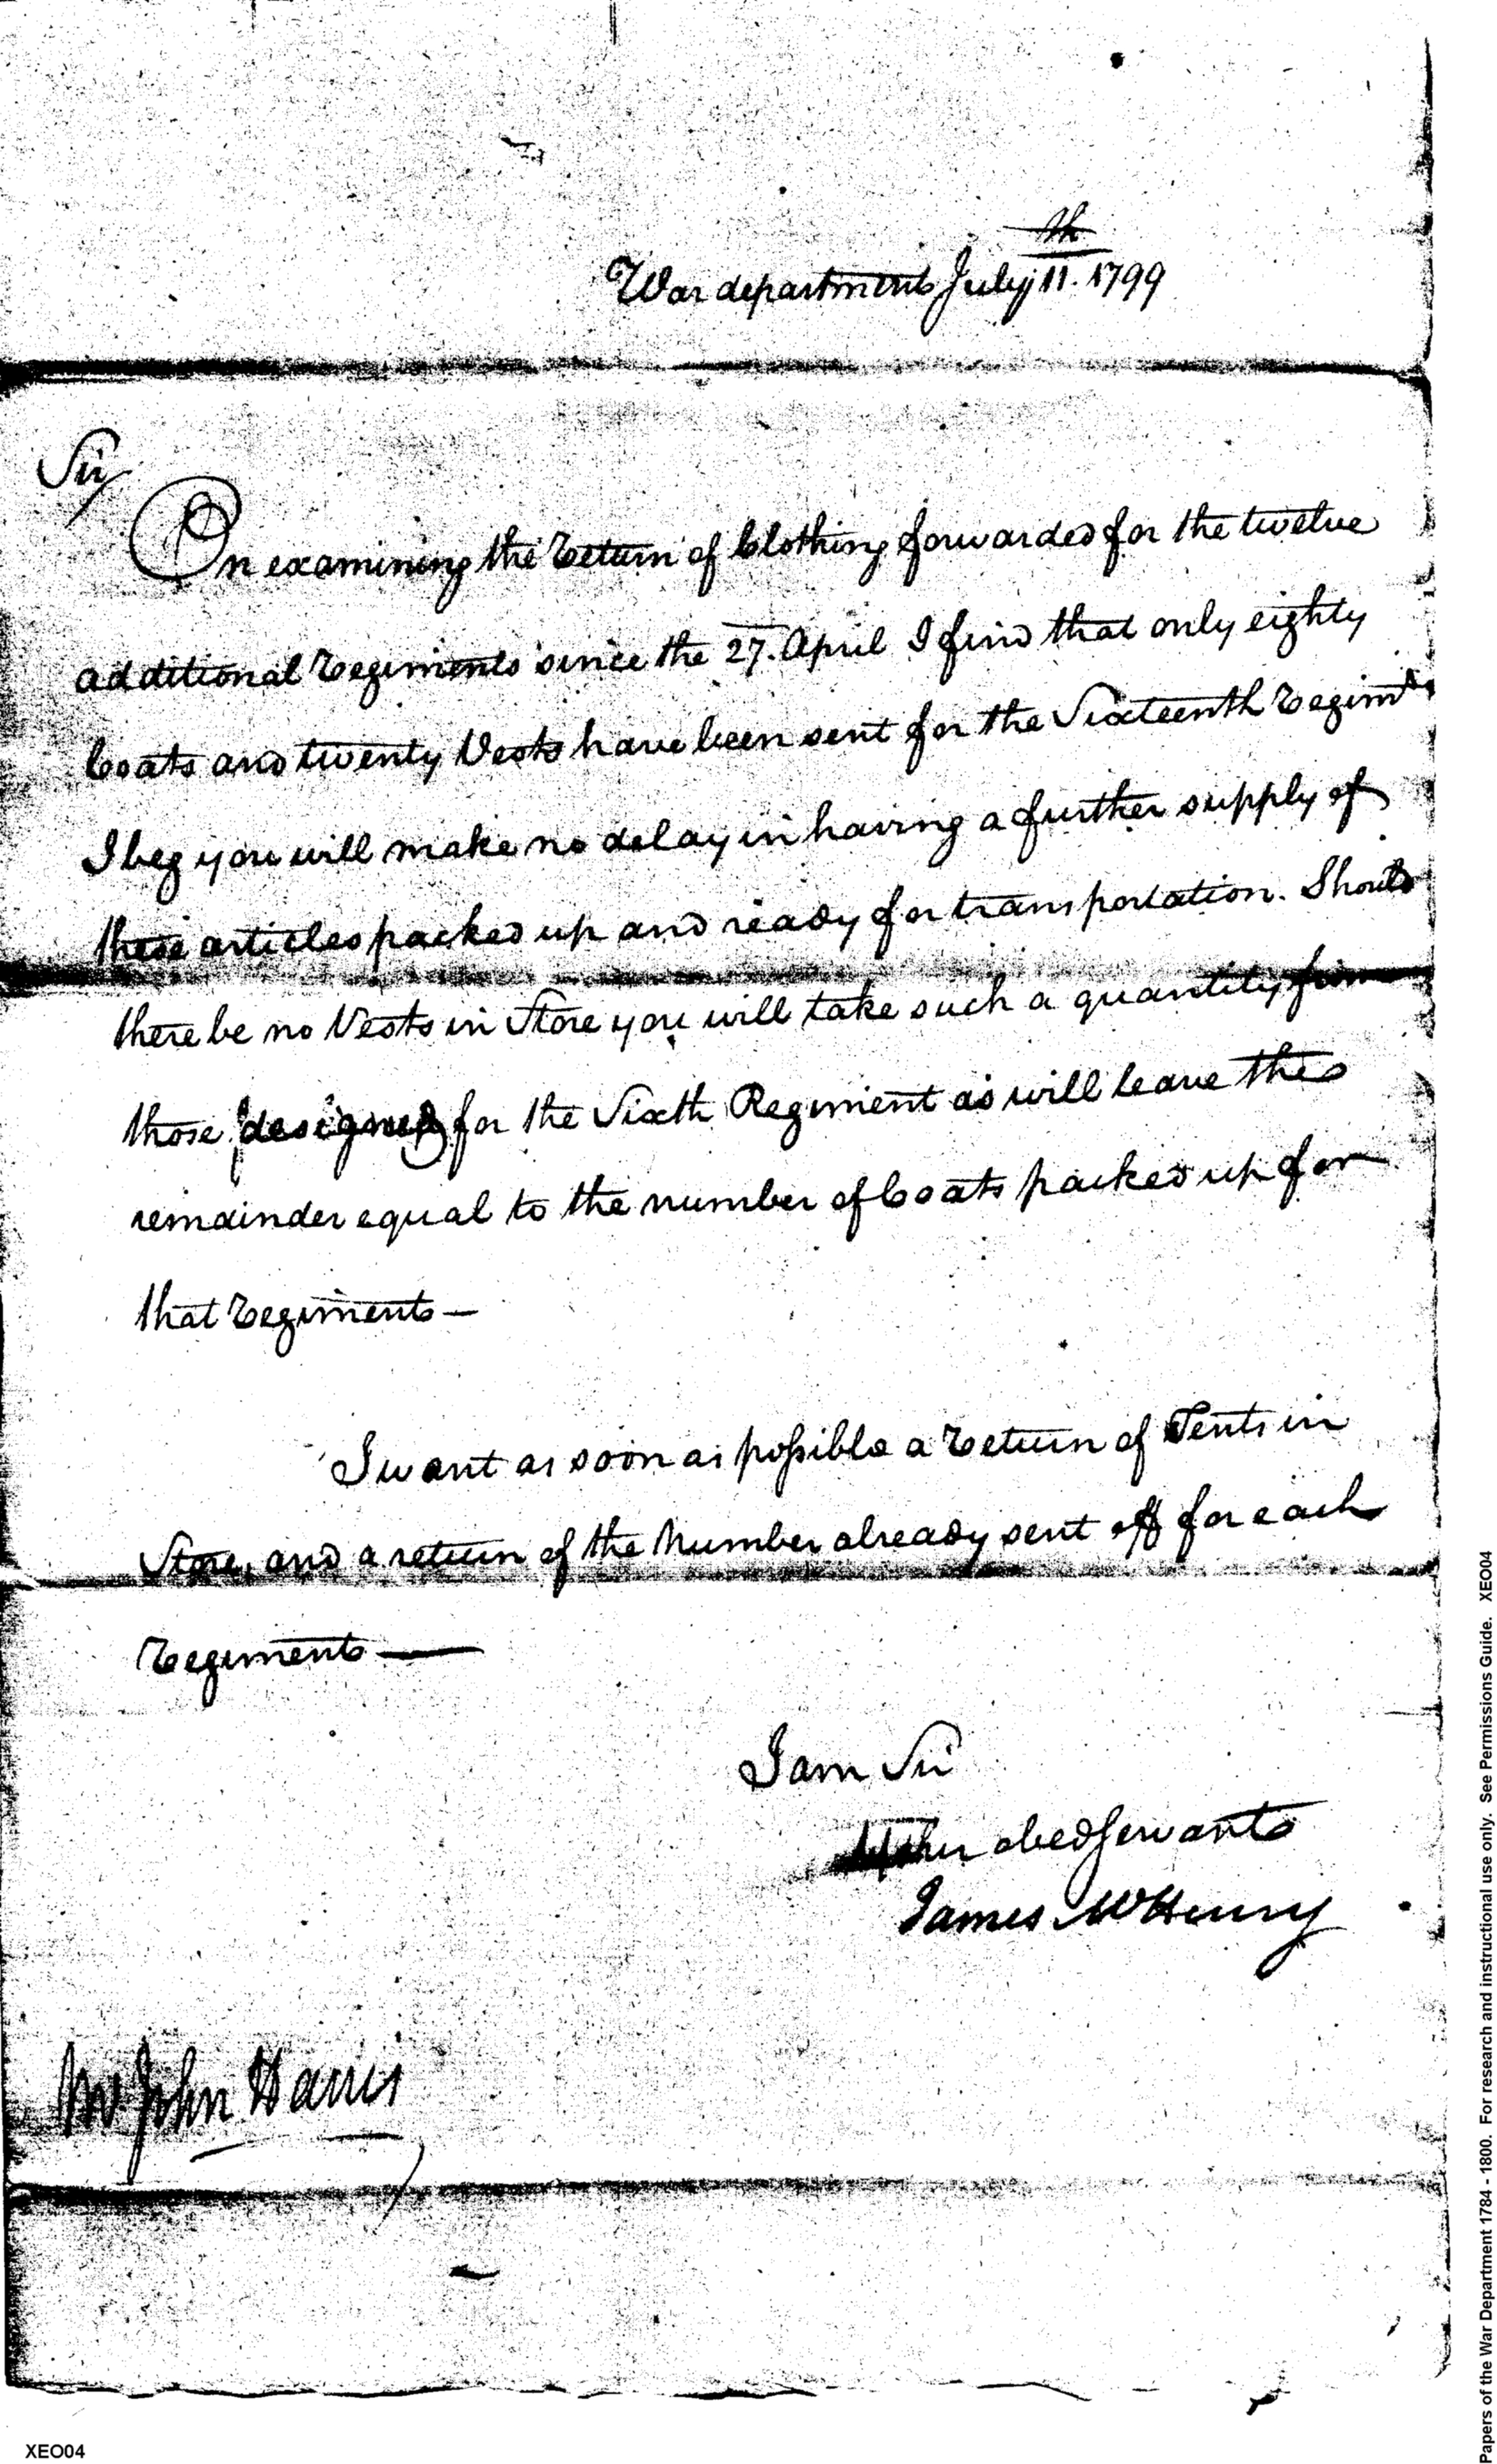 War department July 11th. 1799
Sir
On examining the Return of Clothing forwarded for the twelve
additional Regiments since the 27. April I find that only eighty
Coats and twenty Vests have been sent for the Sixteenth Regimt.
I beg you will make no delay in having a further supply of
these articles packed up and ready for transportation. Should
there be no Vests in Store you will take such a quantity from
those designed for the Sixth Regiment as will leave the
remainder equal to the number of Coats packed up for
that Regiment —
I want as soon as possible a Return of Tents in
Store, and a return of the Number already sent off for each
Regiment —
I am Sir
obed Servant
James McHenry
Mr John Harris
XEO04
Papers of the War Department 1784 - 1800. For research and instructional use only. See Permissions Guide. XEO04